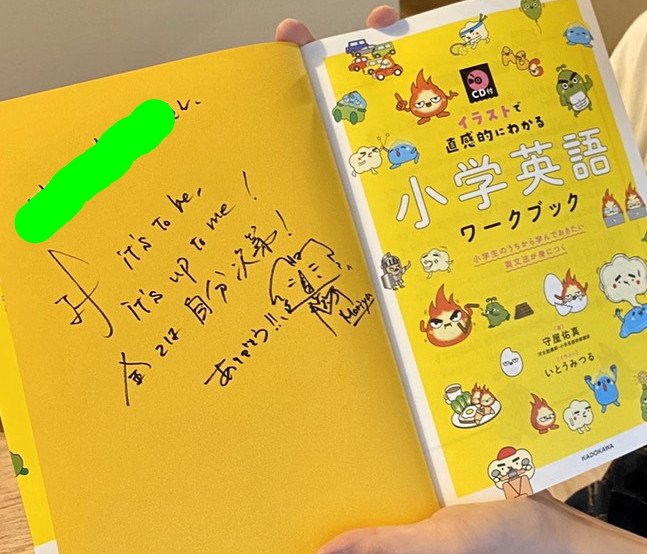 If it's to be,
it's up to me!
全ては自分次第!
ありがとう!!!
Moriya
CD付
イラストで
直感的にわかる
小学英語
ワークブック
小学生のうちから学んでおきたい
英文法が身につく
[著]
守屋佑真
河合塾講師・小学英語研修講師
[イラスト]
いとうみつる
KADOKAWA